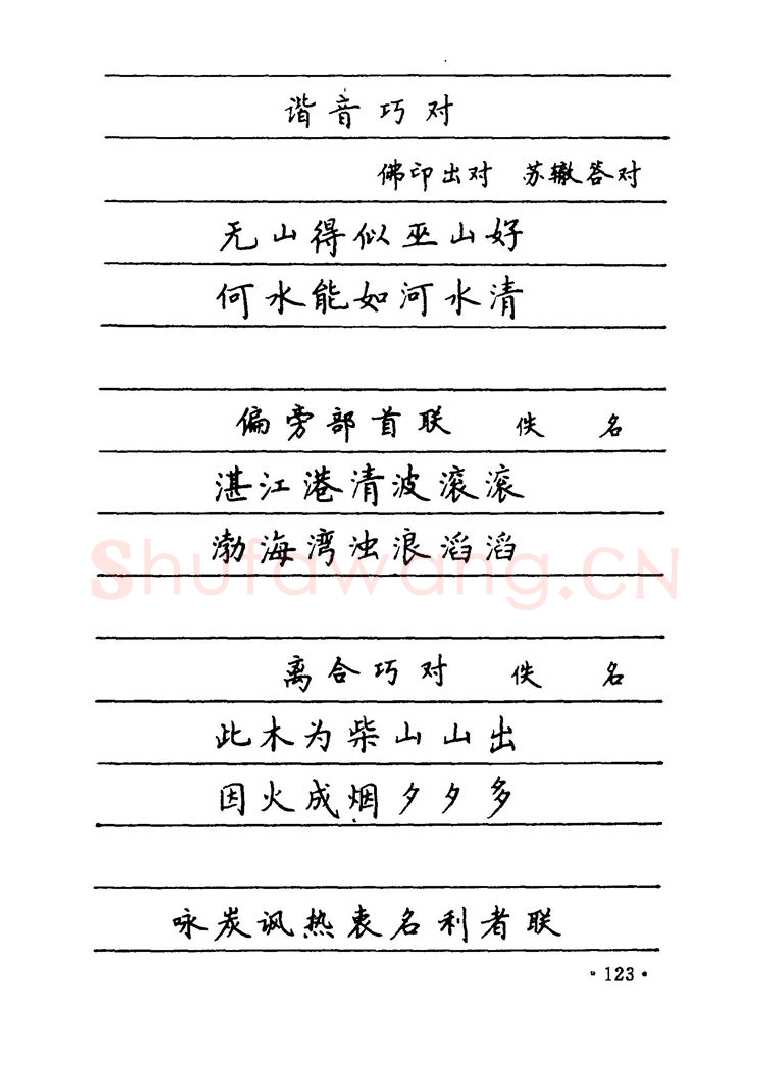 谐音巧对
佛印出对 苏辙答对
无山得似巫山好
何水能如河水清
偏旁部首联 佚 名
湛江港清波滚滚
渤海湾浊浪滔滔
Shufawang.CN
离合巧对 佚 名
此木为柴山山出
因火成烟夕夕多
咏炭讽热衷名利者联
·123·